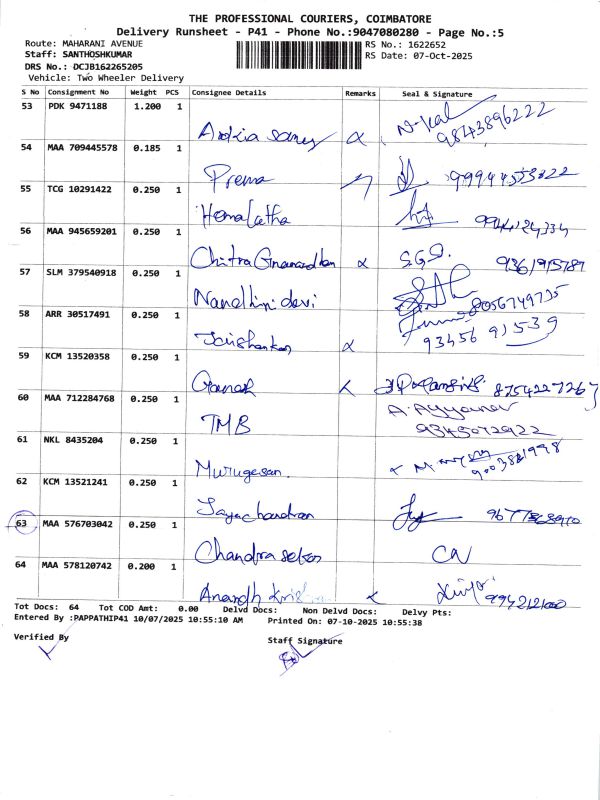 THE PROFESSIONAL COURIERS, COIMBATORE
Delivery Runsheet - P41 - Phone No.:9047080280 - Page No.:5
Route: MAHARANI AVENUE
RS No.: 1622652
Staff: SANTHOSHKUMAR
RS Date: 07-Oct-2025
DRS No.: DCJB162265205
Vehicle: Two Wheeler Delivery
S No Consignment No Weight PCS Consignee Details Remarks Seal & Signature
53 PDK 9471188 1.200 1
Arokia Samy 9843896222
54 MAA 709445578 0.185 1
Prema
55 TCG 10291422 0.250 1
Hemalatha
56 MAA 945659201 0.250 1
Chitra S.G.S.
57 SLM 379540918 0.250 1
Nandhini devi 8056749735
58 ARR 30517491 0.250 1
Jaishankar 93456 91539
59 KCM 13520358 0.250 1
Ganesh 8754227267
60 MAA 712284768 0.250 1
TMB A. Ayyanar
9345072922
61 NKL 8435204 0.250 1
Murugesan
62 KCM 13521241 0.250 1
Jayachandran
63 MAA 576703042 0.250 1
Chandra sekar
64 MAA 578120742 0.200 1
Anandh
Tot Docs: 64 Tot COD Amt: 0.00 Delvd Docs: Non Delvd Docs: Delvy Pts:
Entered By :PAPPATHIP41 10/07/2025 10:55:10 AM Printed On: 07-10-2025 10:55:38
Verified By
Staff Signature